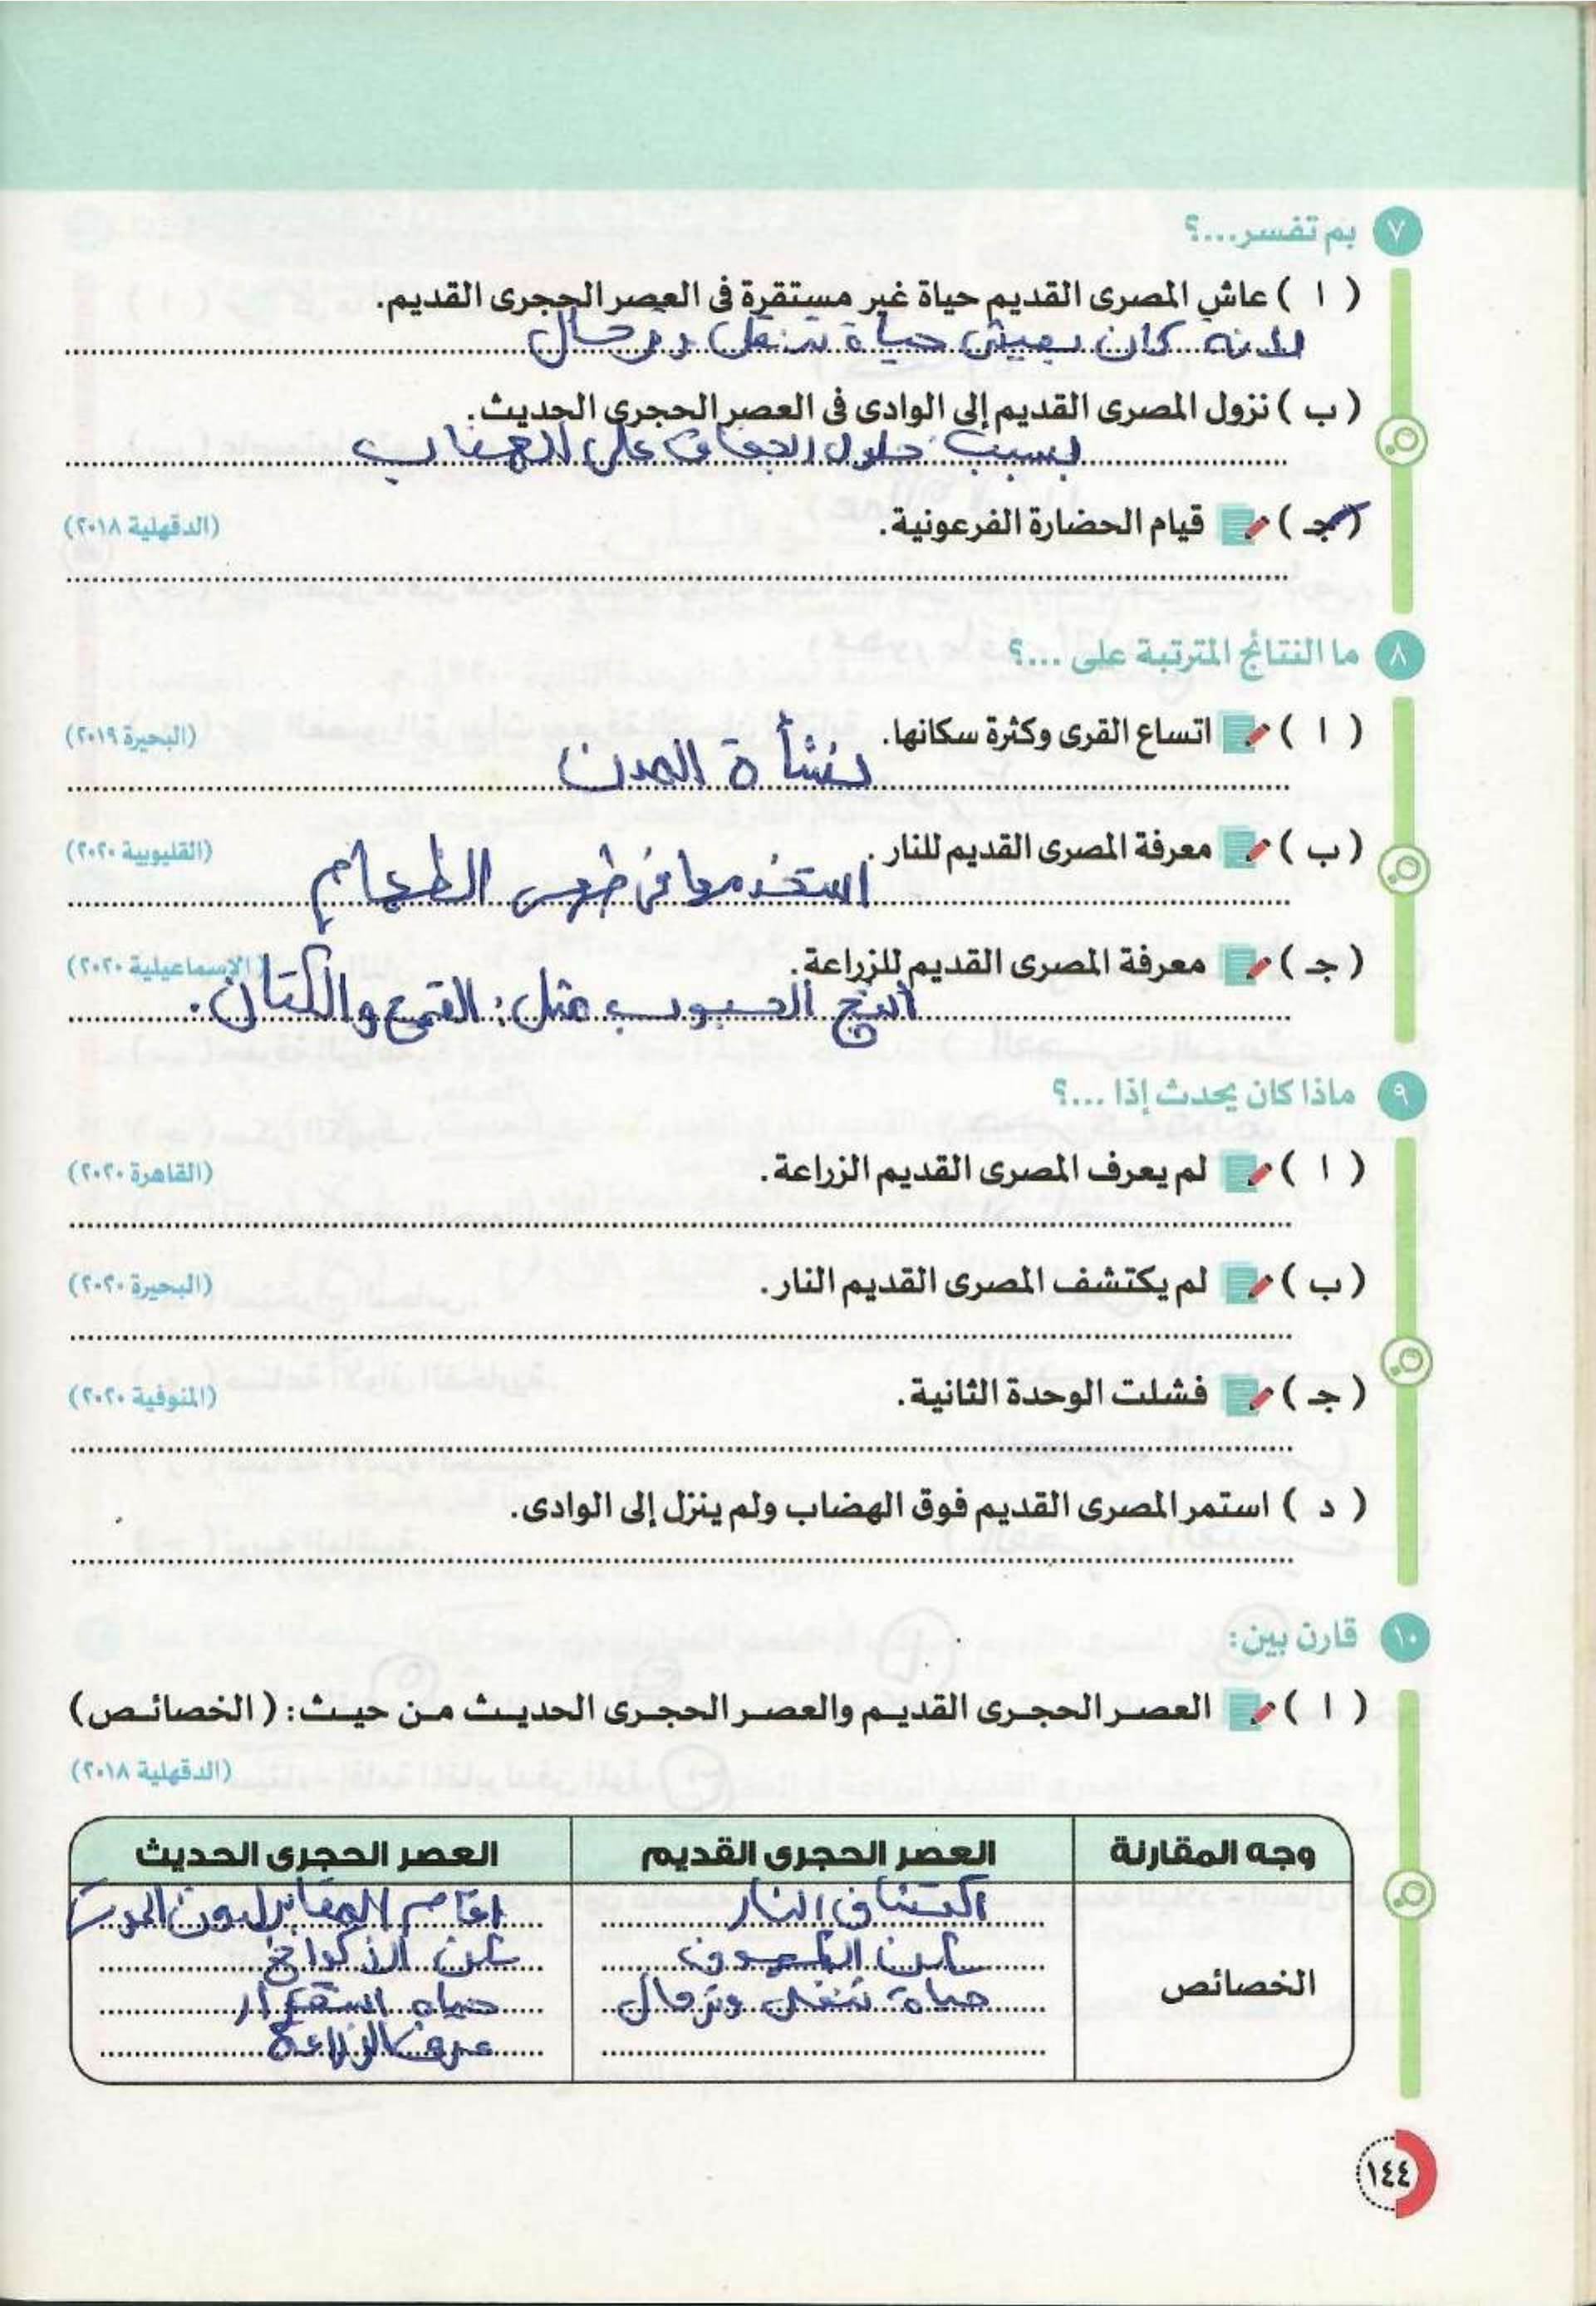 ٧ بم تفسر...؟
( ا ) عاش المصرى القديم حياة غير مستقرة فى العصر الحجرى القديم.
لانه كان يعيش حياة تنقل وترحال
( ب ) نزول المصرى القديم إلى الوادى فى العصر الحجرى الحديث.
بسبب حلول الجفاف على الهضاب
( جـ ) قيام الحضارة الفرعونية. (الدقهلية ٢٠١٨)
٨ ما النتائج المترتبة على ...؟
( ا ) اتساع القرى وكثرة سكانها. (البحيرة ٢٠١٩)
نشأة المدن
( ب ) معرفة المصرى القديم للنار. (القليوبية ٢٠٢٠)
استخدمها فى طهى الطعام
( جـ ) معرفة المصرى القديم للزراعة. (الإسماعيلية ٢٠٢٠)
انتج الحبوب مثل: القمح والكتان.
٩ ماذا كان يحدث إذا ...؟
( ا ) لم يعرف المصرى القديم الزراعة. (القاهرة ٢٠٢٠)
( ب ) لم يكتشف المصرى القديم النار. (البحيرة ٢٠٢٠)
( جـ ) فشلت الوحدة الثانية. (المنوفية ٢٠٢٠)
( د ) استمر المصرى القديم فوق الهضاب ولم ينزل إلى الوادى.
١٠ قارن بين:
( ا ) العصر الحجرى القديم والعصر الحجرى الحديث من حيث: (الخصائص)
(الدقهلية ٢٠١٨)
وجه المقارنة العصر الحجرى القديم العصر الحجرى الحديث
الخصائص
اكتشاف النار
سكن الكهوف
حياة تنقل وترحال
اقام المقابر لدفن الموتى
سكن الاكواخ
حياه استقرار
عرف الزراعة
١٤٤